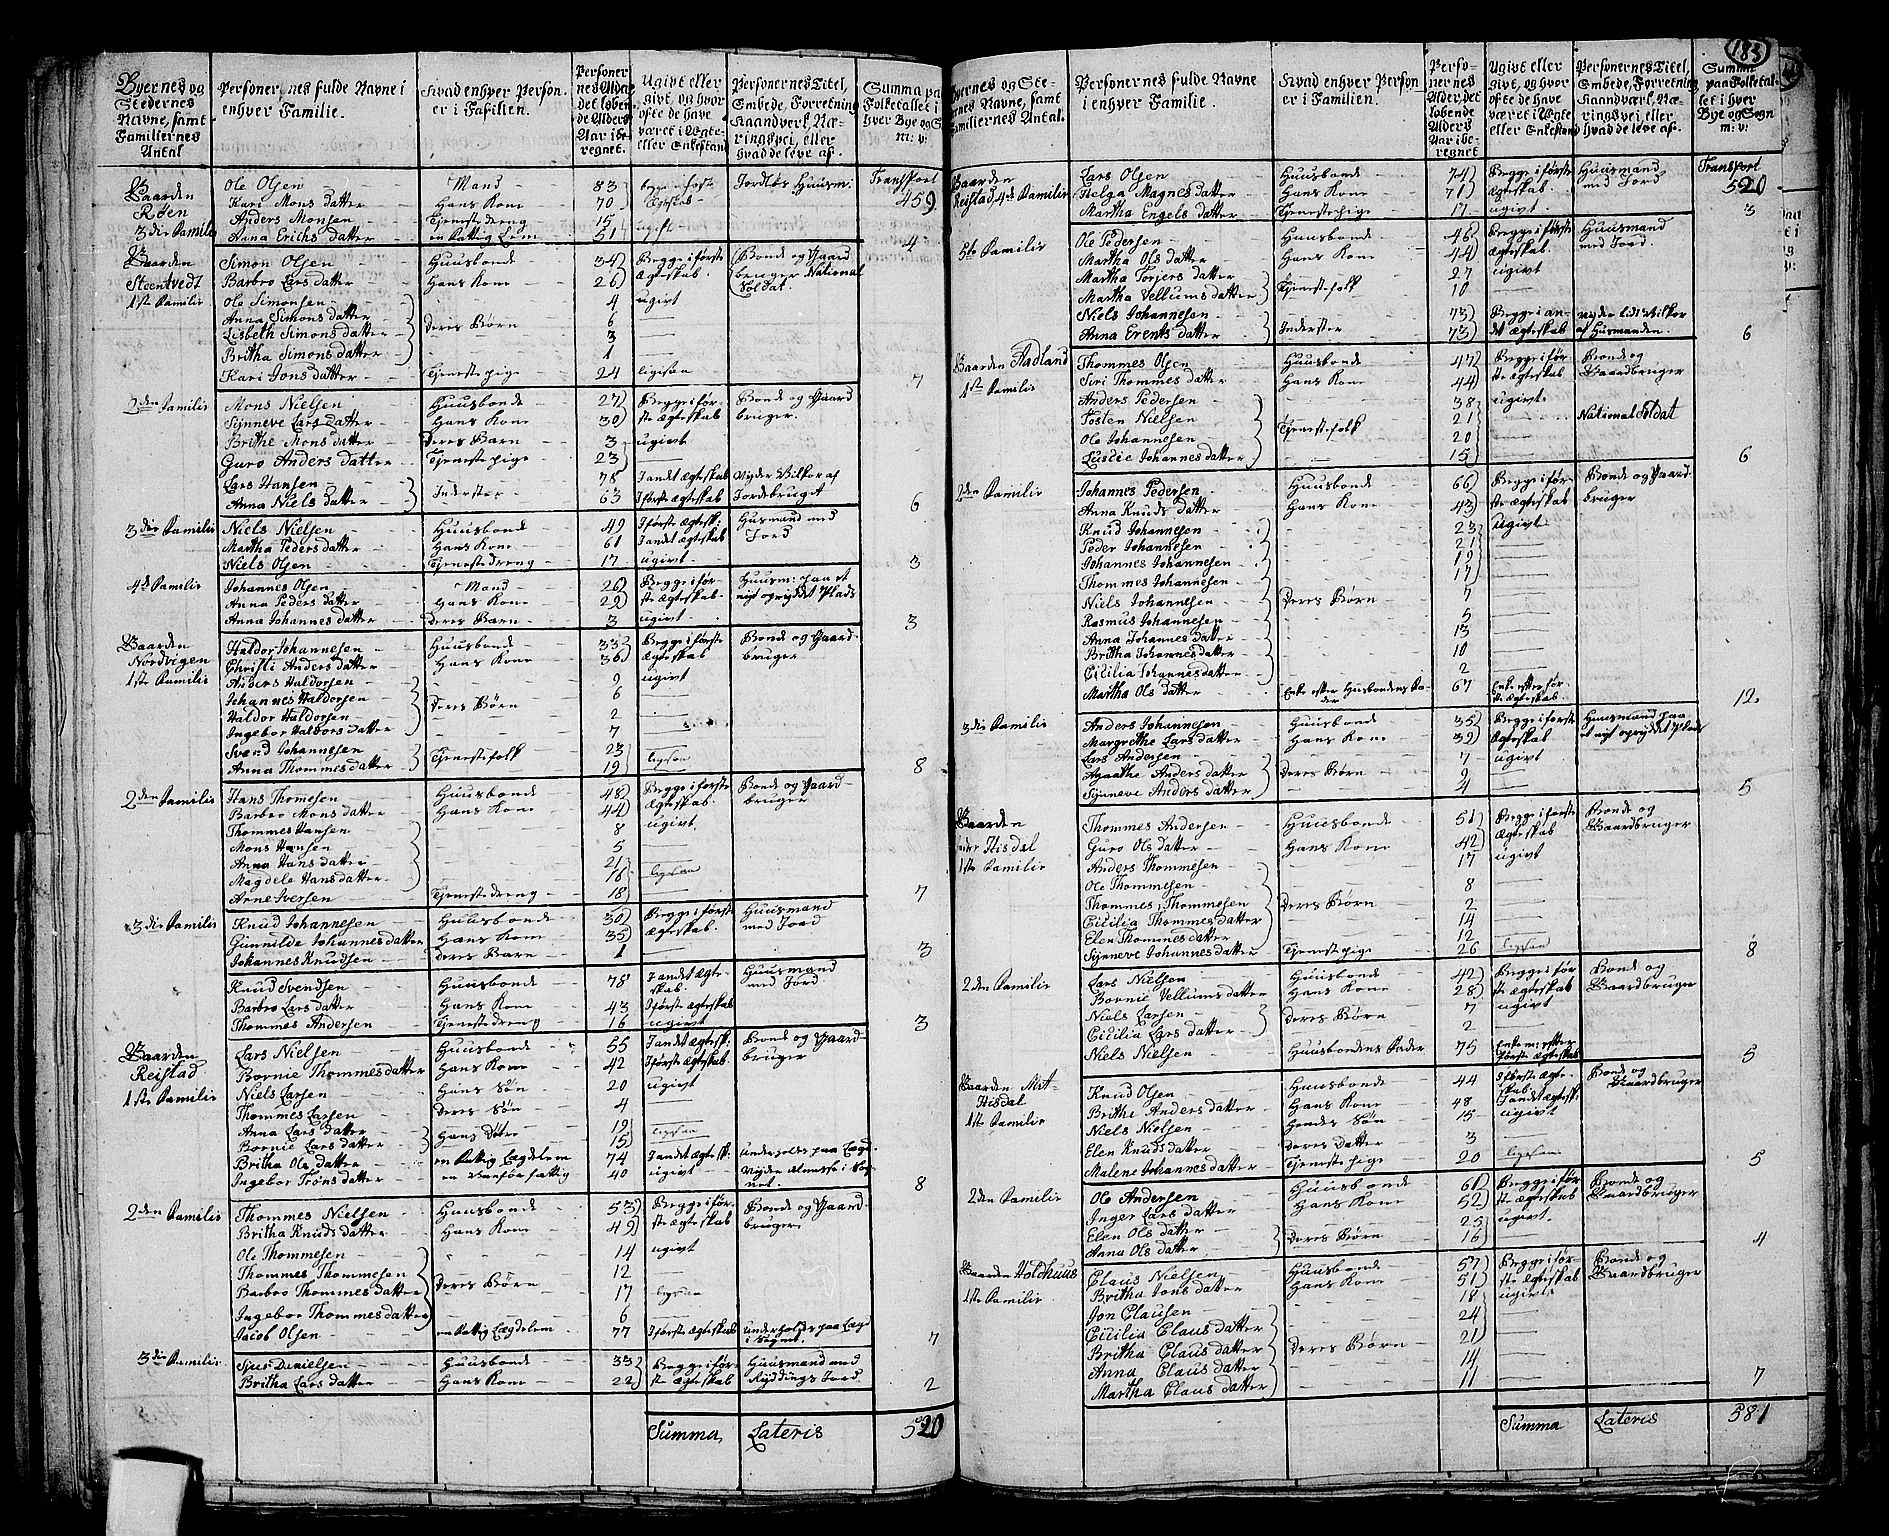 183
Byernes og Stedernes Navne, samt Familiernes Antal | Personernes fulde Navne i enhver Familie. | Hvad enhver Person er i Familien. | Personernes Alder, det løbende Alders Aar iberegnet | Ugivt eller givt, og hvor ofte de have været i Ægte- eller Enkestand | Personernes Titel, Embede, Forretning, Haandverk, Næringsvei, eller hvad de leve af. | Summa paa Folketallet i hver Bye og Sogn m: v:
Transport 459
Gaarden Røen 3die Familie | Ole Olsen | Mand | 83 | Jordløs Huusm:
Kari Mons datter | Hans Kone | 70 | Ægteskab
Anders Monsen | Tjenestedreng | 15 | ugift
Anna Erichs datter | en Fattig Lem | 51 | 4
Gaarden Steentvedt 1ste Familie | Simon Olsen | Huusbonde | 34 | Begge i første | Bonde og Gaard
Barbro Lars datter | Hans Kone | 26 | Ægteskab | bruger National Soldat.
Ole Simonsen | 4 | ugivt
Anna Simons datter | Deres Børn | 6
Lisbeth Simons datter | 3
Britha Simons datter | 1
Kari Jons datter | Tjenestepige | 24 | ligesaa | 7
2den Familie | Mons Nielsen | Huusbonde | 27 | Begge i før- | Bonde og Gaard
Synneve Lars datter | Hans Kone | 30 | ste Ægteskab | bruger.
Brithe Mons datter | Deres Barn | 3 | ugivt
Guro Anders datter | Tjenestepige | 23
Lars Hansen | Inderster | 78 | I andet Ægteskab | Nyder Vilkor af
Anna Niels datter | 63 | I første Ægteskab | Jordebruget | 6
3die Familie | Niels Nielsen | Huusbonde | 49 | I første Ægtesk: | Husmand med
Martha Peders datter | Hans Kone | 61 | I andet Ægteskab | Jord
Niels Olsen | Tjenestedreng | 17 | ugivt | 3
4de Familie | Johannes Olsen | Mand | 26 | Begge i før- | Huusm: paa et
Anna Peders datter | Hans Kone | 29 | ste Ægteskab | nyt opryddet Plads
Anna Johannes datter | Deres Barn | 3 | ugivt | 3
Gaarden Nordvigen 1ste Familie | Haldor Johannesen | Huusbonde | 33 | Begge i første | Bonde og Gaard-
Christi Anders datter | Hans Kone | 36 | Ægteskab | bruger
Anders Haldorsen | 9 | ugivt
Johannes Haldorsen | Deres Børn | 6
Haldor Haldorsen | 2
Ingebor Haldors datter | 7
Svend Johannesen | Tjenestefolk | 23 | ligesaa
Anna Thommes datter | 19 | 8
2den Familie | Hans Thomesen | Huusbonde | 48 | Begge i første | Bonde og Gaard-
Barbro Mons datter | Hans Kone | 44 | Ægteskab | bruger
Thommes Hansen | 8 | ugivt
Mons Hansen | 5
Anna Hans datter | 21
Magdele Hans datter | 16 | ligesaa
Arne Iversen | Tjenestedreng | 18 | 7
3die Familie | Knud Johannesen | Huusbonde | 30 | Begge i første | Huusmand
Gunnilde Johannes datter | Hans Kone | 35 | Ægteskab. | med Jord
Johannes Knudsen | Deres Barn | 1 | 3
Knud Svendsen | Huusbonde | 78 | I andet Ægteskab. | Huusmand med Jord
Barbro Lars datter | Hans Kone | 43 | I første Ægteskab
Thommes Andersen | Tjenestedreng | 16 | ugivt | 3
Gaarden Reistad 1ste Familie | Lars Nielsen | Huusbonde | 55 | I andet Ægtesk: | Bonde og Gaard-
Bornie Thommes datter | Hans Kone | 42 | I første Ægteskab | bruger
Niels Larsen | Hans Søn | 20 | ugivt
Thommes Larsen | Deres Søn | 4
Anna Lars datter | Hans Døtre | 19
Bornie Lars datter | 15 | ligesaa
Britha Ols datter | en Fattig Lægdelem | 74 | I andet Ægtesk: | underholdes paa Lægd
Ingebor Trons datter | en Vanfør fattig | 40 | ugivt | Nyder Almisse i Sognet. | 8
2den Familie | Thommes Nielsen | Huusbonde | 53 | Begge i før- | Bonde og Gaard-
Britha Knuds datter | Hans Kone | 49 | ste Ægteskab | bruger
Ole Thommesen | 14 | ugivt
Thommes Thommesen | 12
Barbro Thommes datter | Deres Børn | 17 | ligesaa
Ingebor Thommes datter | 6
Jacob Olsen | en Fattig Lægdelem | 77 | I første Ægteskab | underholdes paa Lægd i Sognet. | 7
3die Familie | Sjur Danielsen | Huusbonde | 33 | Begge i før- | Huusmand med
Britha Lars datter | Hans Kone | 22 | ste Ægteskab | Ryddings Jord | 2
Summa Lateris 520
Byernes og Stedernes Navne, samt Familiernes Antal. | Personernes fulde Navne i enhver Familie. | Hvad enhver Person er i Familien. | Personernes Alder, det løbende Alders Aar iberegnet | Ugivt eller givt, og hvor ofte de have været i Ægte- eller Enkestand | Personernes Titel, Embede, Forretning, Haandverk, Næringsvei, eller hvad de leve af. | Summa paa Folketallet i hver Bye og Sogn m: v:
Transport 520
Gaarden Reistad, 4de Familie | Lars Olsen | Huusbonde | 74 | Begge i første | Huusmand
Helga Magnes datter | Hans Kone | 71 | Ægteskab | med Jord
Martha Engels datter | Tjenestepige | 17 | ugivt | 3
5te Familie | Ole Pedersen | Huusbonde | 46 | Begge i første | Huusmand
Martha Ols datter | Hans Kone | 44 | Ægteskab | med Jord.
Martha Torjers datter | Tjenestefolk | 27 | ugivt
Martha Vellums datter | 10
Niels Johannesen | Inderster | 73 | Begge i an- | nyder lidt Vilkor
Anna Erents datter | 73 | det Ægteskab | af Husmanden. | 6
Gaarden Fladland 1ste Familie | Thommes Olsen | Huusbonde | 47 | Begge i før- | Bonde og
Siri Thommes datter | Hans Kone | 44 | ste Ægteskab | Gaardbruger
Anders Pedersen | 38 | ugivt
Tosten Nielsen | Tjenestefolk | 21 | National Soldat
Ole Johannesen | 20
Luscie Johannes datter | 15 | 6
2den Familie | Johannes Pedersen | Huusbonde | 66 | Begge i før- | Bonde og Gaard-
Anna Knuds datter | Hans Kone | 43 | ste Ægteskab | bruger
Knud Johannesen | 23 | ugivt
Peder Johannesen | 21
Johannes Johannesen | 19
Thommes Johannesen | 17
Niels Johannesen | Deres Børn | 7
Rasmus Johannesen | 5
Anna Johannes datter | 13
Britha Johannes datter | 10
Cicilia Johannes datter | 2
Martha Ols datter | Enke efter Husbondens Fader | 67 | Enke efter første Ægteskab | 12.
3die Familie | Anders Johannesen | Huusbonde | 35 | Begge i første | Huusmand paa
Margrethe Lars datter | Hans Kone | 39 | Ægteskab | et nyt opryddet Plads
Lars Andersen | 7 | ugivt
Agaathe Anders datter | Deres Børn | 9
Synneve Anders datter | 4 | 5
Gaarden Hisdal 1ste Familie | Thommes Andersen | Huusbonde | 51 | Begge i første | Bonde og
Guro Ols datter | Hans Kone | 42 | Ægteskab | Gaardbruger
Anders Thommesen | 17 | ugivt
Ole Thommesen | 8
Thommes Thommesen | Deres Børn | 2
Cicilia Thommes datter | 14
Elen Thommes datter | 12
Synneve Johannes datter | Tjenestepige | 26 | ligesaa | 8
2den Familie | Lars Nielsen | Huusbonde | 42 | Begge i før- | Bonde og
Bornie Vellums datter | Hans Kone | 28 | ste Ægteskab | Gaardbruger
Niels Larsen | Deres Børn | 7 | ugivt
Cicilia Lars datter | 2
Niels Nielsen | Huusbondens Fader | 75 | Enkem: efter første Ægteskab | 5
Gaarden Mit-Hisdal 1ste Familie | Knud Olsen | Huusbonde | 44 | I første Ægteskab | Bonde og Gaardbruger
Brithe Anders datter | Hans Kone | 48 | I andet Ægtesk:
Niels Nielsen | Hendes Søn | 15 | ugivt
Elen Knuds datter | Deres Datter | 3
Malene Johannes datter | Tjenestepige | 20 | ligesaa | 5
2den Familie | Ole Andersen | Huusbonde | 61 | Begge i før- | Bonde og
Inger Lars datter | Hans Kone | 52 | ste Ægteskab | Gaardbruger
Elen Ols datter | Deres Børn | 25 | ugivt
Anna Ols datter | 16 | 4
Gaarden Holdhuus 1ste Familie | Claus Nielsen | Huusbonde | 57 | Begge i før- | Bonde og
Britha Jons datter | Hans Kone | 51 | ste Ægteskab | Gaardbruger
Jon Clausen | 18 | ugivt
Cicilia Claus datter | 24
Britha Claus datter | Deres Børn | 21
Anna Claus datter | 14
Martha Claus datter | 11 | 7
Summa Lateris 581